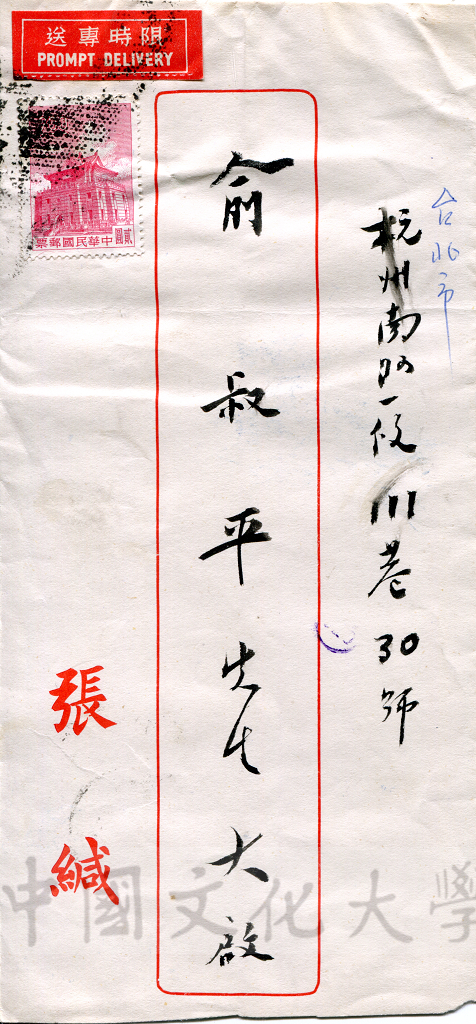 限時專送
PROMPT DELIVERY
中華民國郵票
貳圓
台北市
杭州南路一段111巷30號
俞叔平先生大啟
張緘
中國文化大學